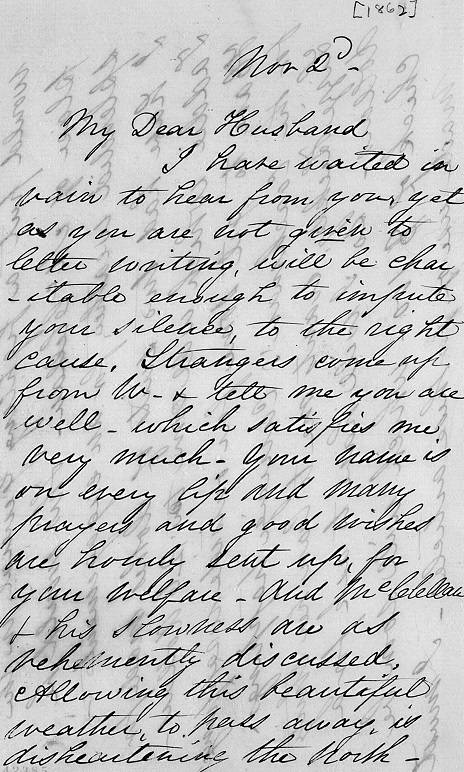 [1862]
Nov 2d -
My Dear Husband
I have waited in
vain to hear from you, yet
as you are not given to
letter writing, will be char
-itable enough to impute
your silence, to the right
cause. Strangers come up
from W- & tell me you are
well - which satisfies me
very much - Your name is
on every lip and many
prayers and good wishes
are hourly sent up, for
your welfare - And McClellan
& his slowness are as
vehemently discussed.
Allowing this beautiful
weather, to pass away, is
disheartening the North -